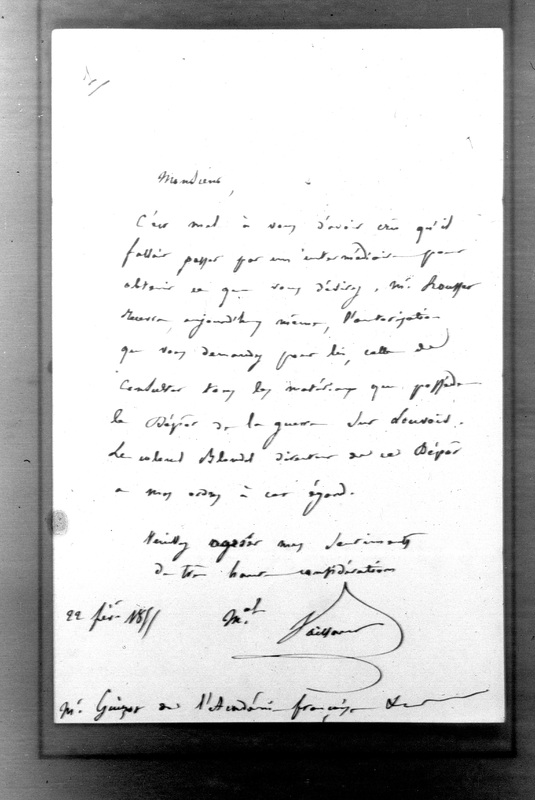 Monsieur,
C'est mal à vous d'avoir cru qu'il
fallait passer par un intermédiaire pour
obtenir ce que vous désirez. Mr. Rousset
recevra, aujourd'hui même, l'autorisation
que vous demandez pour lui, celle de
consulter tous les matériaux que possède
le Dépôt de la guerre sur Louvois.
Le colonel Blondel directeur de ce Dépôt
a mes ordres à cet égard.
Veuillez agréer mes sentiments
de très haute considération
22 févr 1855 Mal Vaillant
Mr. Guizot de l'Académie française